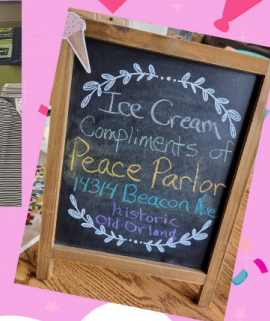 Ice Cream
Compliments of
Peace Parlor
14314 Beacon Ave
historic
Old Orland